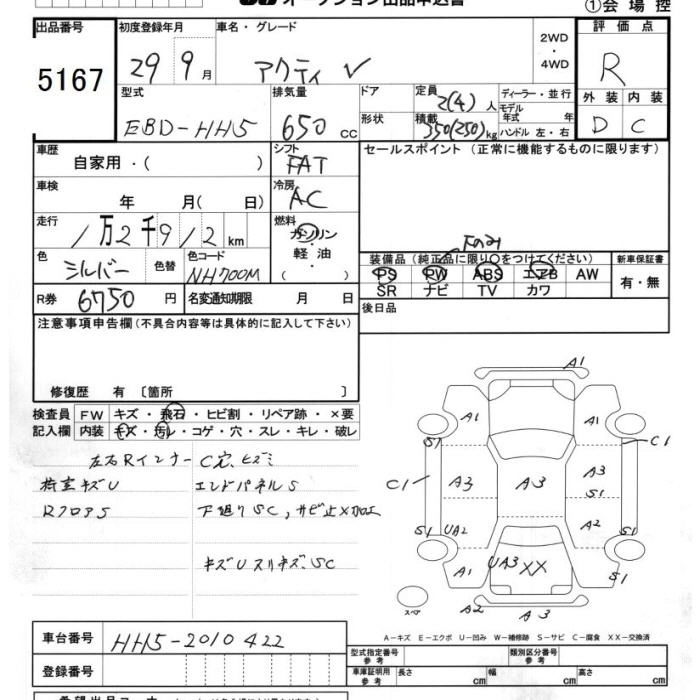 オークション出品申込書
①会場控
出品番号
5167
初度登録年月
29 9月
車名・グレード
アクティ V
2WD
・
4WD
評価点
R
外装 内装
D C
型式
EBD-HH5
排気量
650 CC
ドア
形状
定員
2(4)人
積載
350(250)kg
ディーラー・並行
モデル
年式 年
ハンドル 左・右
車歴
自家用・( )
シフト
FAT
セールスポイント (正常に機能するものに限ります)
車検
年 月(日)
冷房
AC
走行
1万2千912km
燃料
ガソリン
・
軽油
・
( )
色
シルバー
色替
色コード
NH700M
Fのみ
装備品(純正品に限り○をつけてください)
PS PW ABS エアB AW
SR ナビ TV カワ
新車保証書
有・無
R券
6750円
名変通知期限 月 日
後日品
注意事項申告欄(不具合内容等は具体的に記入して下さい)
修復歴 有〔箇所 〕
検査員
記入欄
FW キズ・飛石・ヒビ割・リペア跡・×要
内装 キズ・汚レ・コゲ・穴・スレ・キレ・破レ
左右Rインナー C穴、ヒズミ
荷室キズU エンドパネルS
RフロアS 下廻りSC、サビ止メ加工
キズUスリキズ、SC
A1
A1 A1
S1 C1
C1 A3 A3 A3
S1
A2
S1 UA2 S1
A1 UA3 XX
S1
スペア
A2 A3
A-キズ E-エクボ U-凹み W-補修跡 S-サビ C-腐食 XX-交換済
車台番号
HH5-2010422
登録番号
型式指定番号
参考
類別区分番号
参考
車庫証明用
参考
長さ cm 幅 cm 高さ cm
希望出品コーナー